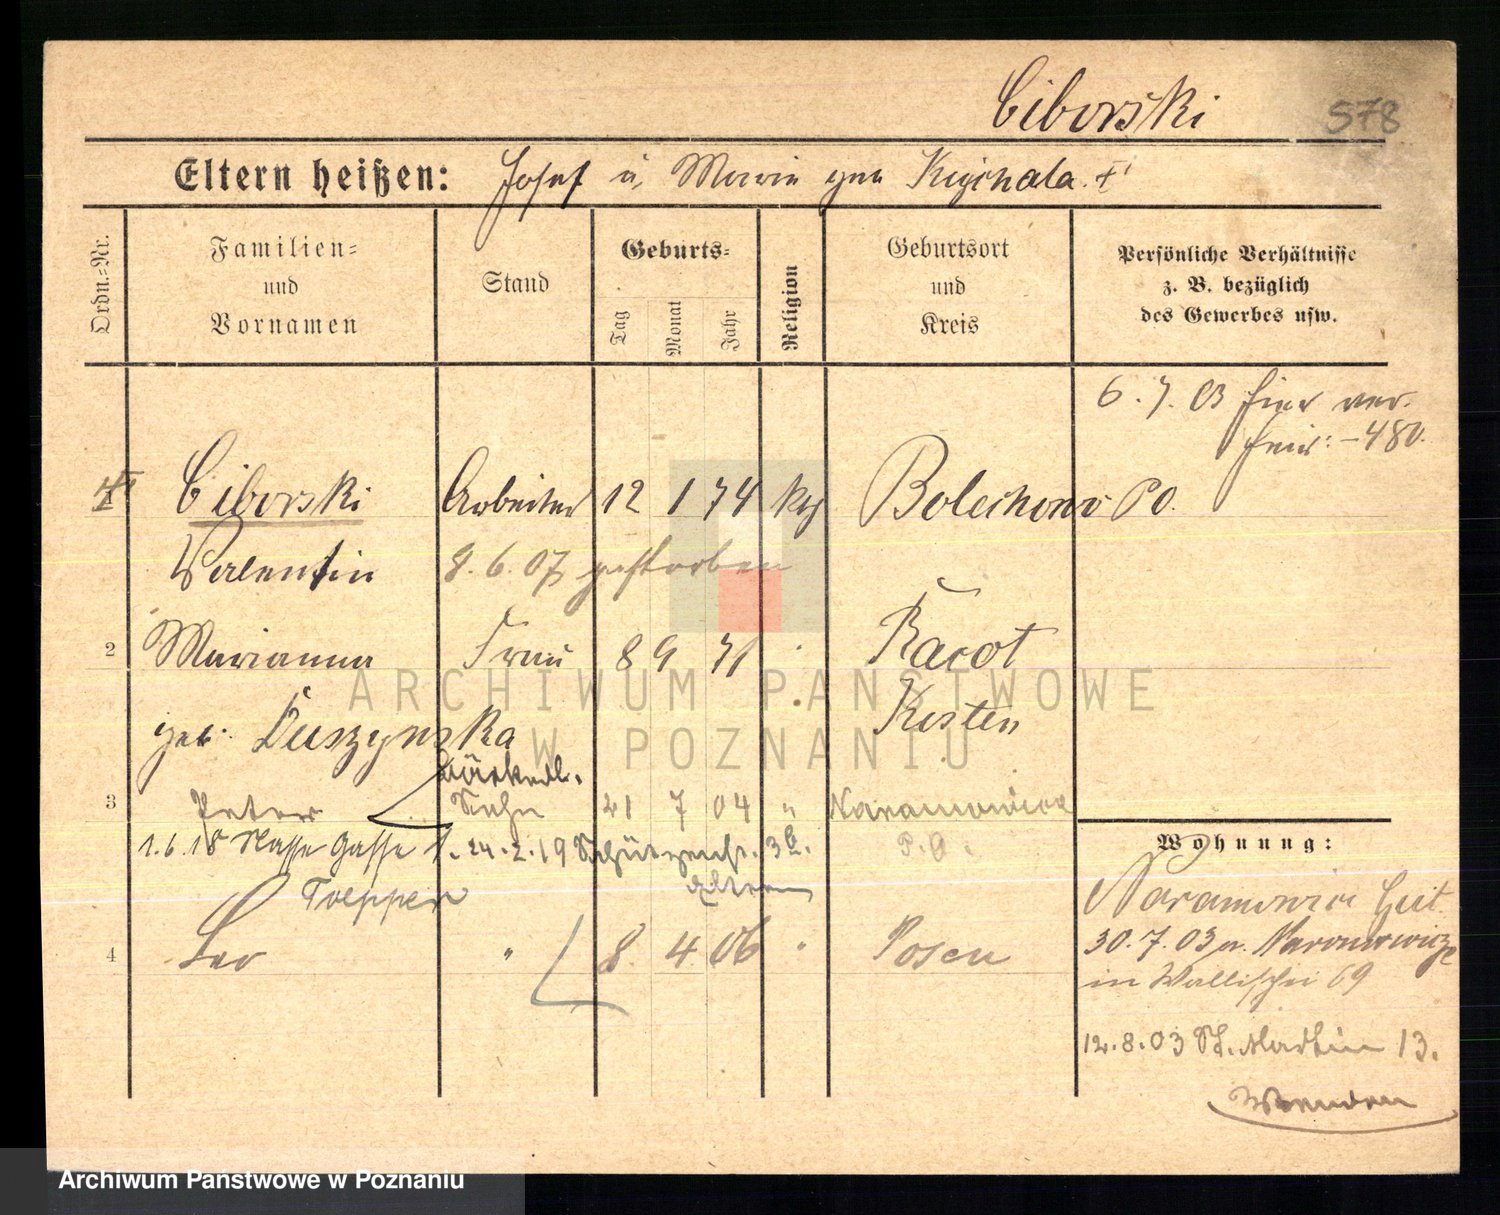 Ciborski 578
Eltern heißen: Josef u. Marie geb Kuchala. †
Ordn.=Nr.
Familien=
und
Vornamen
Stand
Geburts=
Tag
Monat
Jahr
Religion
Geburtsort
und
Kreis
Persönliche Verhältnisse
z. B. bezüglich
des Gewerbes usw.
6. 7. 03 hier
480.
1 Ciborski Arbeiter 12 1 74 kth Bolechowo PO.
Valentin 8. 6. 07 gestorben
2 Marianna Frau 8 9 71 Racot
geb. Duszynska Kosten
3 Peter Sohn 21 7 04 " Naramowice
P. O.
1. 6. 18 Nasse Gasse 1. 24. 2. 19 Schützenstr. 3b.
Eltern
Toepper
4 Leo " 8. 4. 06 " Posen
Wohnung:
Naramowice Gut
30. 7. 03 a. Naramowice
in Wallischei 69
12. 8. 03 St. Martin 13.
Wenden
ARCHIWUM PAŃSTWOWE
W POZNANIU
Archiwum Państwowe w Poznaniu